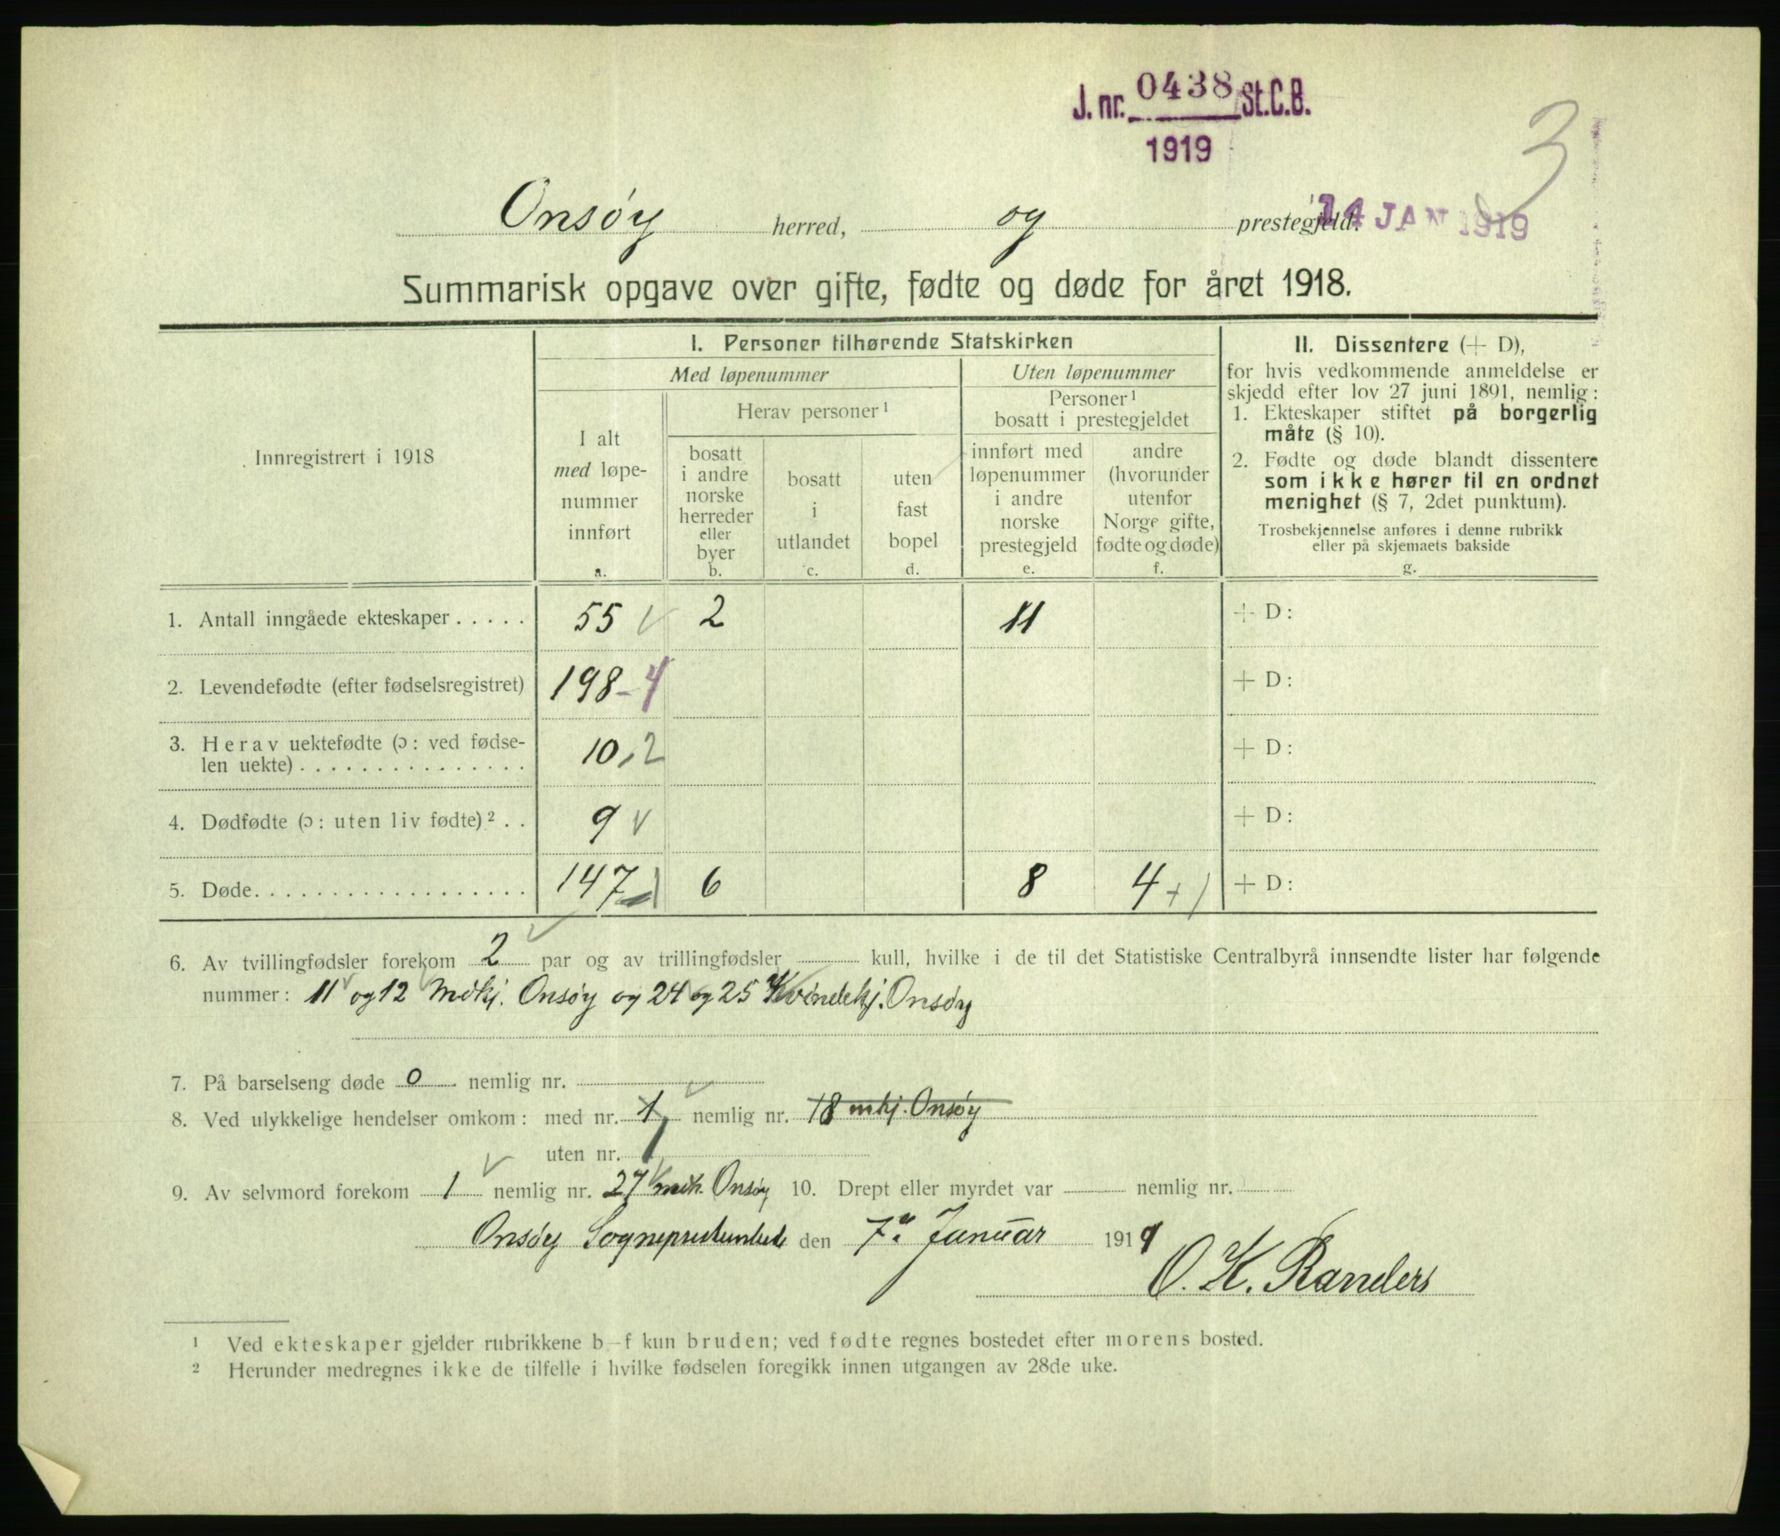 J. nr. 0438 St.C.B.
1919
3
14 JAN 1919
Onsøy herred, og prestegjeld.
Summarisk opgave over gifte, fødte og døde for året 1918.
Innregistrert i 1918
I. Personer tilhørende Statskirken
Med løpenummer
Uten løpenummer
I alt
med løpe-
nummer
innført
a.
Herav personer ¹
bosatt
i andre
norske
herreder
eller
byer
b.
bosatt
i
utlandet
c.
uten
fast
bopel
d.
Personer ¹
bosatt i prestegjeldet
innført med
løpenummer
i andre
norske
prestegjeld
e.
andre
(hvorunder
utenfor
Norge gifte,
fødte og døde)
f.
II. Dissentere (+ D),
for hvis vedkommende anmeldelse er
skjedd efter lov 27 juni 1891, nemlig:
1. Ekteskaper stiftet på borgerlig
måte (§ 10).
2. Fødte og døde blandt dissentere
som ikke hører til en ordnet
menighet (§ 7, 2det punktum).
Trosbekjennelse anføres i denne rubrikk
eller på skjemaets bakside
g.
1. Antall inngåede ekteskaper . . . . . 55 √ 2 11 + D:
2. Levendefødte (efter fødselsregistret) 198 - 4 + D:
3. Herav uektefødte (ɔ: ved fødse-
len uekte) . . . . . . . . . . . . . . . 10, 2 + D:
4. Dødfødte (ɔ: uten liv fødte) ² . . 9 √ + D:
5. Døde. . . . . . . . . . . . . . . . . . 147 - 1 6 8 4 + 1 + D:
6. Av tvillingfødsler forekom 2 par og av trillingfødsler kull, hvilke i de til det Statistiske Centralbyrå innsendte lister har følgende
nummer: 11 og 12 Mdkj. Onsøy og 24 og 25 Kvindekj. Onsøy
7. På barselseng døde 0 nemlig nr.
8. Ved ulykkelige hendelser omkom: med nr. 1 nemlig nr. 18 mkj. Onsøy
uten nr. 1
9. Av selvmord forekom 1 nemlig nr. 27 Onsøy 10. Drept eller myrdet var nemlig nr.
Onsøy Sogneprestembede den 7de Januar 1919
O. K. Randers
¹ Ved ekteskaper gjelder rubrikkene b–f kun bruden; ved fødte regnes bostedet efter morens bosted.
² Herunder medregnes ikke de tilfelle i hvilke fødselen foregikk innen utgangen av 28de uke.